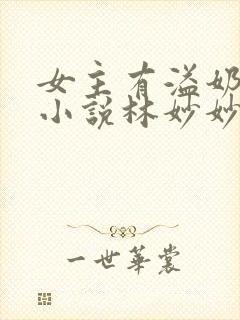 女主有溢奶
小说林妙妙
一世华裳